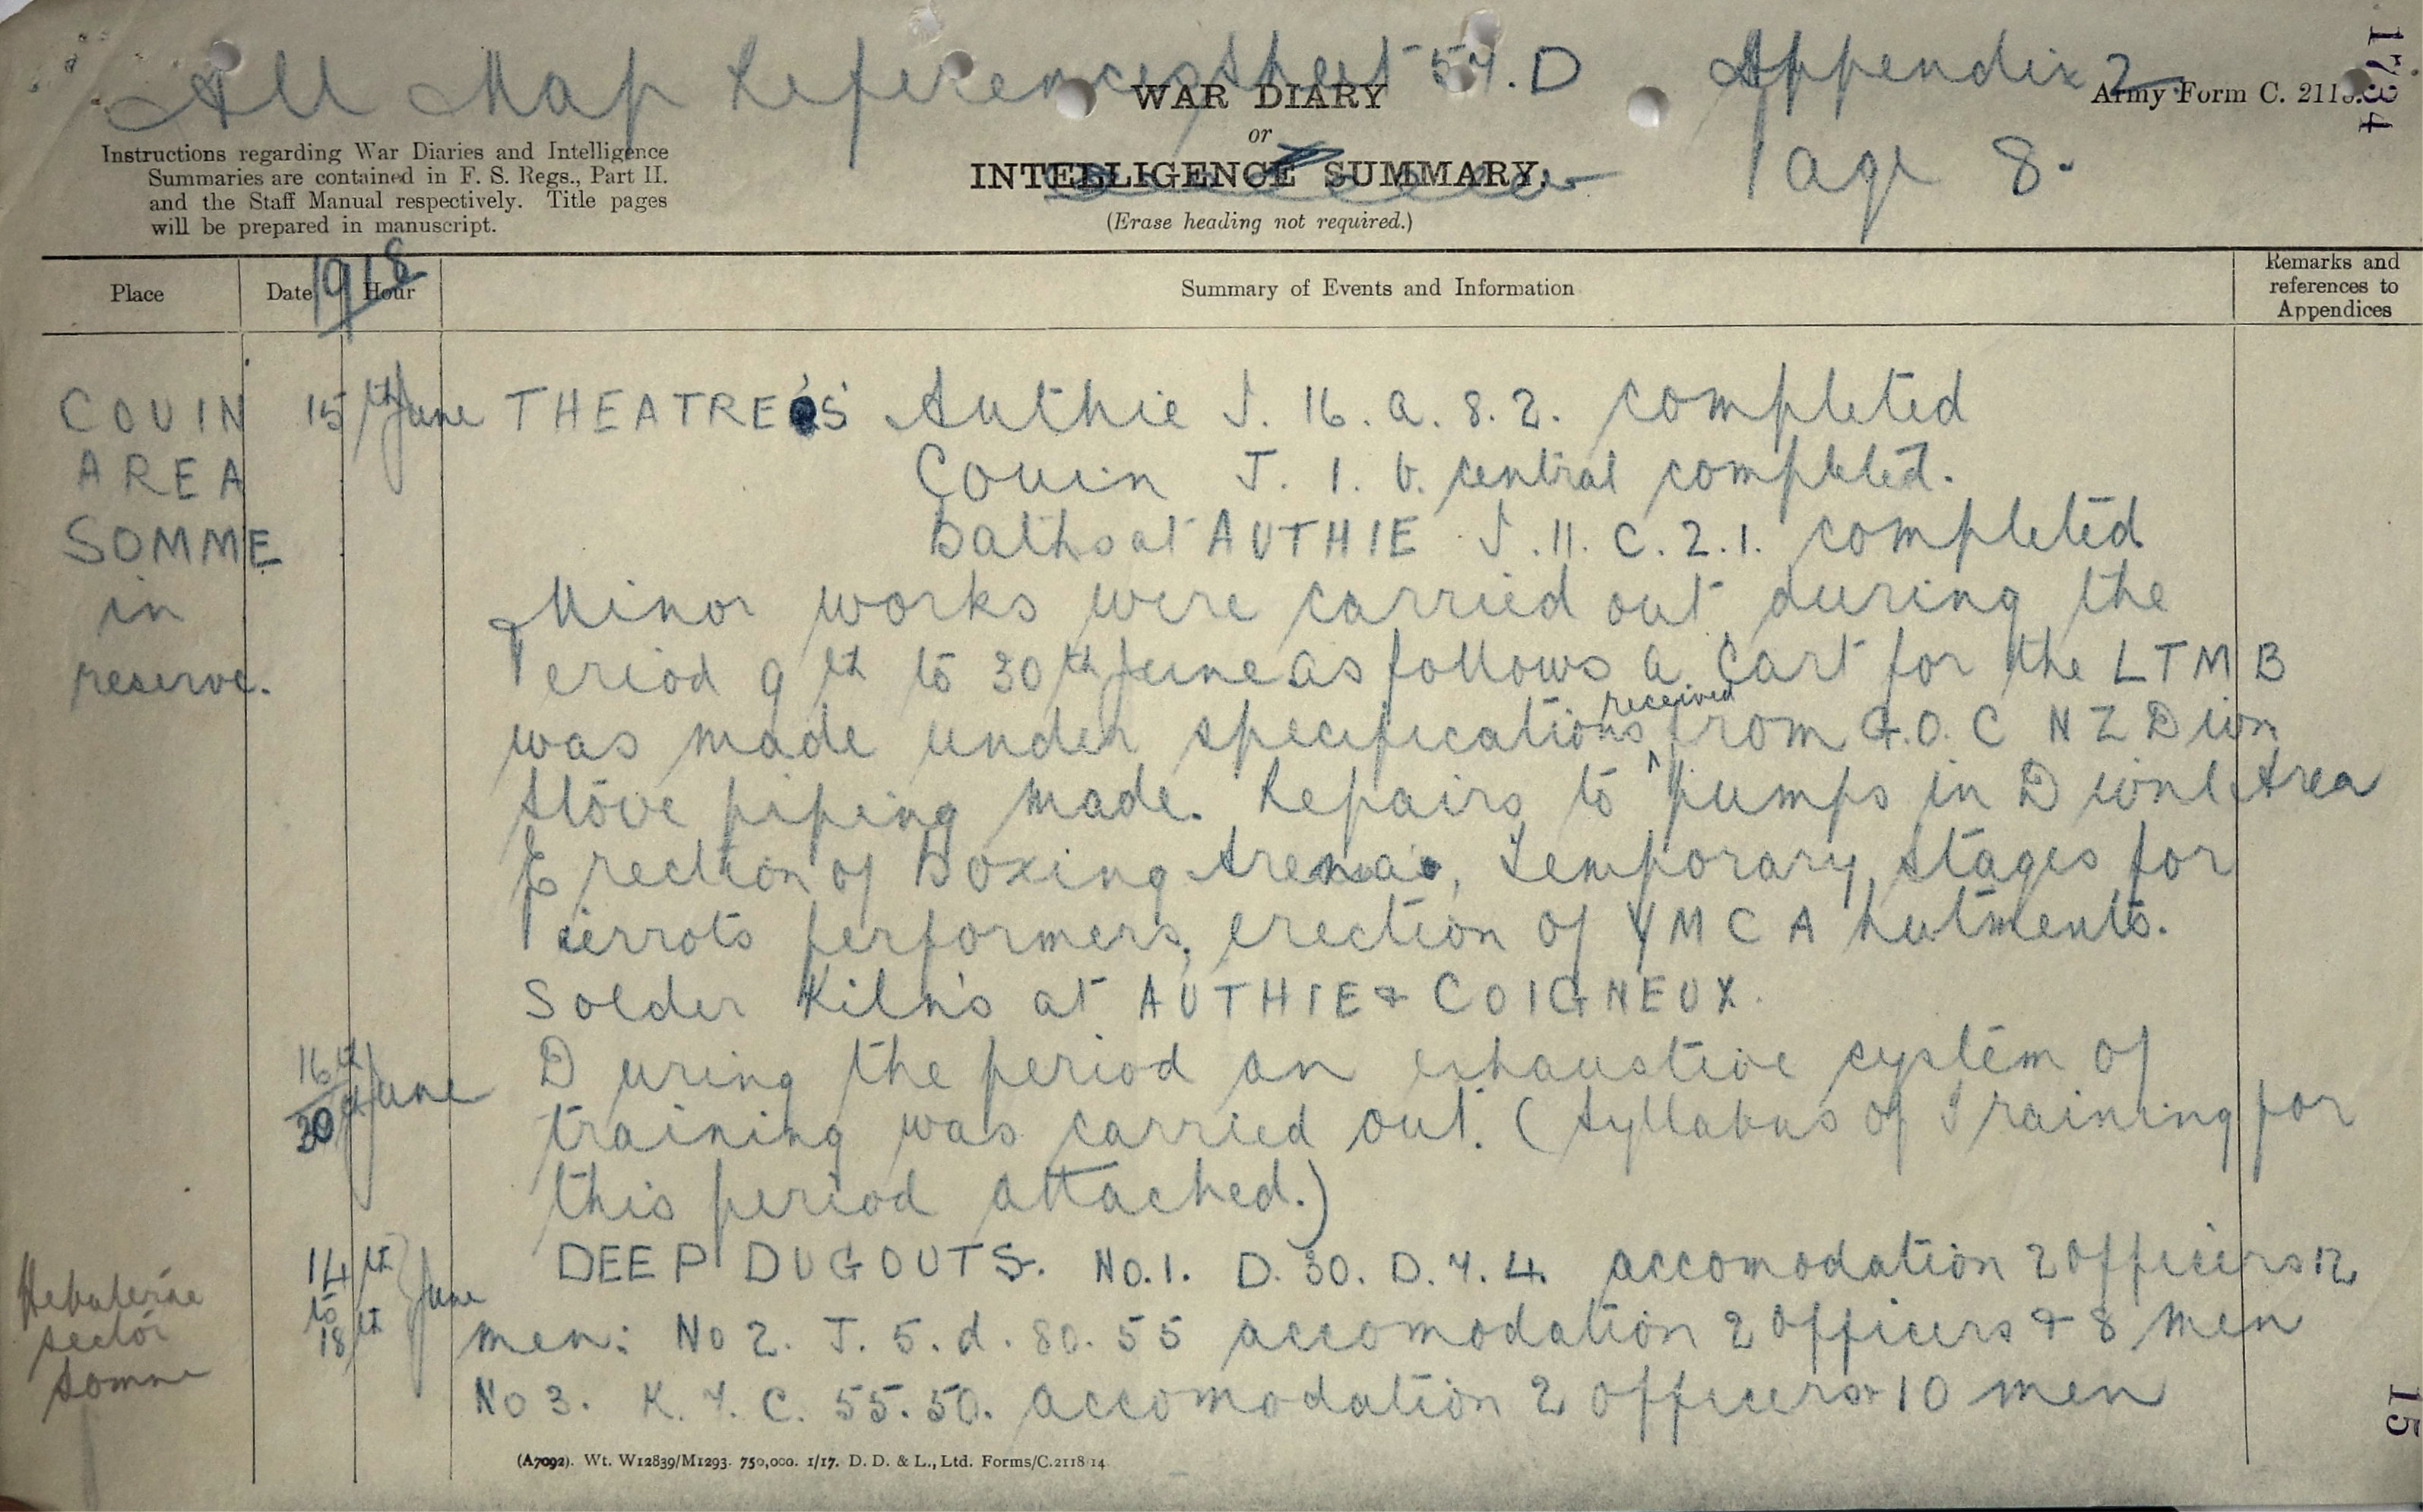 All Map References Sheet 57.D Appendix 2
Page 8.
1734
WAR DIARY
or
INTELLIGENCE SUMMARY.
(Erase heading not required.)
Army Form C. 2118.
Instructions regarding War Diaries and Intelligence
Summaries are contained in F. S. Regs., Part II.
and the Staff Manual respectively. Title pages
will be prepared in manuscript.
Place Date Hour Summary of Events and Information Remarks and references to Appendices
1918
COUIN 15th June THEATRE'S Authie J. 16. a. 8. 2. completed
AREA Couin J. 1. b. central completed.
SOMME Baths at AUTHIE J. 11. C. 2. 1. completed
in Minor works were carried out during the
reserve. Period 9th to 30th June as follows a Cart for the LTMB
was made under specifications received from G.O.C NZ Divn
Stove piping made. Repairs to pumps in Divnl Area
Erection of Boxing Arena, Temporary Stages for
Pierrots performers, erection of YMCA hutments.
Solder Kiln's at AUTHIE & COIGNEUX.
16th/30th June During the period an exhaustive system of
training was carried out. (Syllabus of Training for
this period attached.)
Hebuterne sector Somme 14th to 18th June DEEP DUGOUTS. No.1. D. 30. D. 7. 4. accomodation 2 Officers 12
men: No 2. J. 5. d. 80. 55 accomodation 2 Officers & 8 Men
No 3. K. 7. C. 55. 50. accomodation 2 officers & 10 men
15
(A7092). Wt. W12839/M1293. 750,000. 1/17. D. D. & L., Ltd. Forms/C.2118/14.